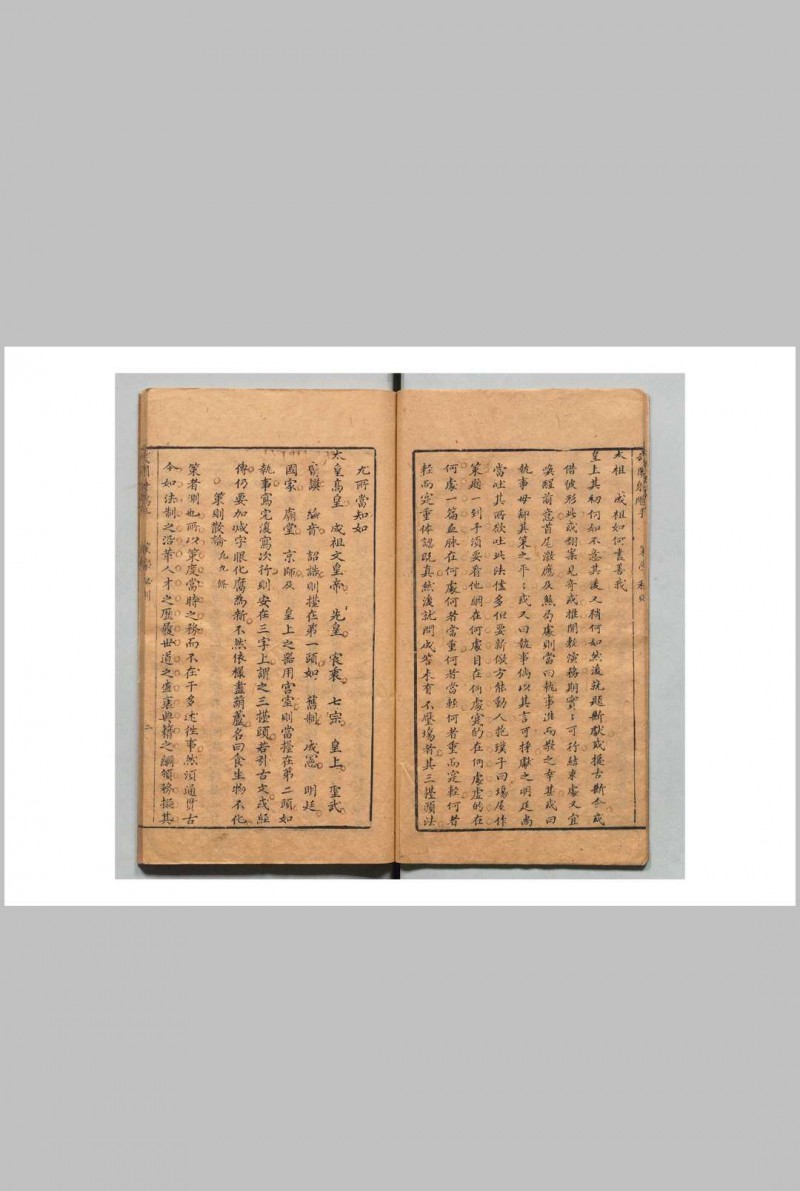 太祖　成祖如何盡善哉
皇上其初何如不怠其後又稍何如然後就題斷獻或援古斷今或
借彼形此或翻案見奇或推開敷演務期實實可行結束處又宜
喚醒前意首尾激應及無局處則當曰執事進而教之幸甚或曰
執事毋鄙其策之平平或又曰執事倘以其言可採獻之明廷尚
當吐其所欲吐此法儘多但要新倣方能動人乾璞子曰場屋作
策題一到手須要看他綱在何處目在何處實的在何處虛的在
何處一篇血脉在何處何者當重何者當輕何者重而定輕何者
輕而定重体認既真然後就問成答未有不壓場者其三擡頭法
尤所當知如
太皇高皇　成祖文皇帝　先皇　宸衷　七宗　皇上　聖武
寶訓　綸音　詔誥則擡在第一頭如　舊制　成憲　明廷
國家　廟堂　京師及　皇上之器用宮室則當擡在第二頭如
執事寫完復寫次行則安在三字上謂之三擡頭若引古文或經
傳仍要加減字眼化腐為新不然依樣畫葫蘆名曰食生物不化
策則散論　九九條
策者測也所以策度當時之務而不在于多述徃事然須通貫古
今如法制之沿革人才之歷履世道之盛衰典籍之綱領務撮其
二